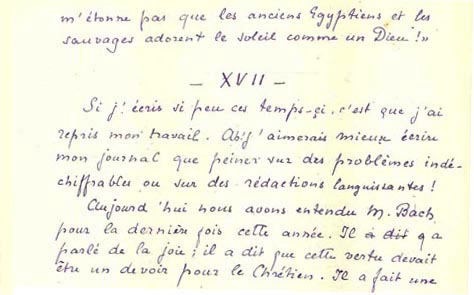 m'étonne pas que les anciens Egyptiens et les
sauvages adorent le soleil comme un Dieu!»
– XVII –
Si j'écris si peu ces temps-çi, c'est que j'ai
repris mon travail. Ah j'aimerais mieux écrire
mon journal que peiner sur des problèmes indé-
chiffrables ou sur des rédactions languissantes!
Aujourd'hui nous avons entendu M. Bach
pour la dernière fois cette année. Il a dit a
parlé de la joie; il a dit que cette vertu devait
être un devoir pour le Chrétien. Il a fait une